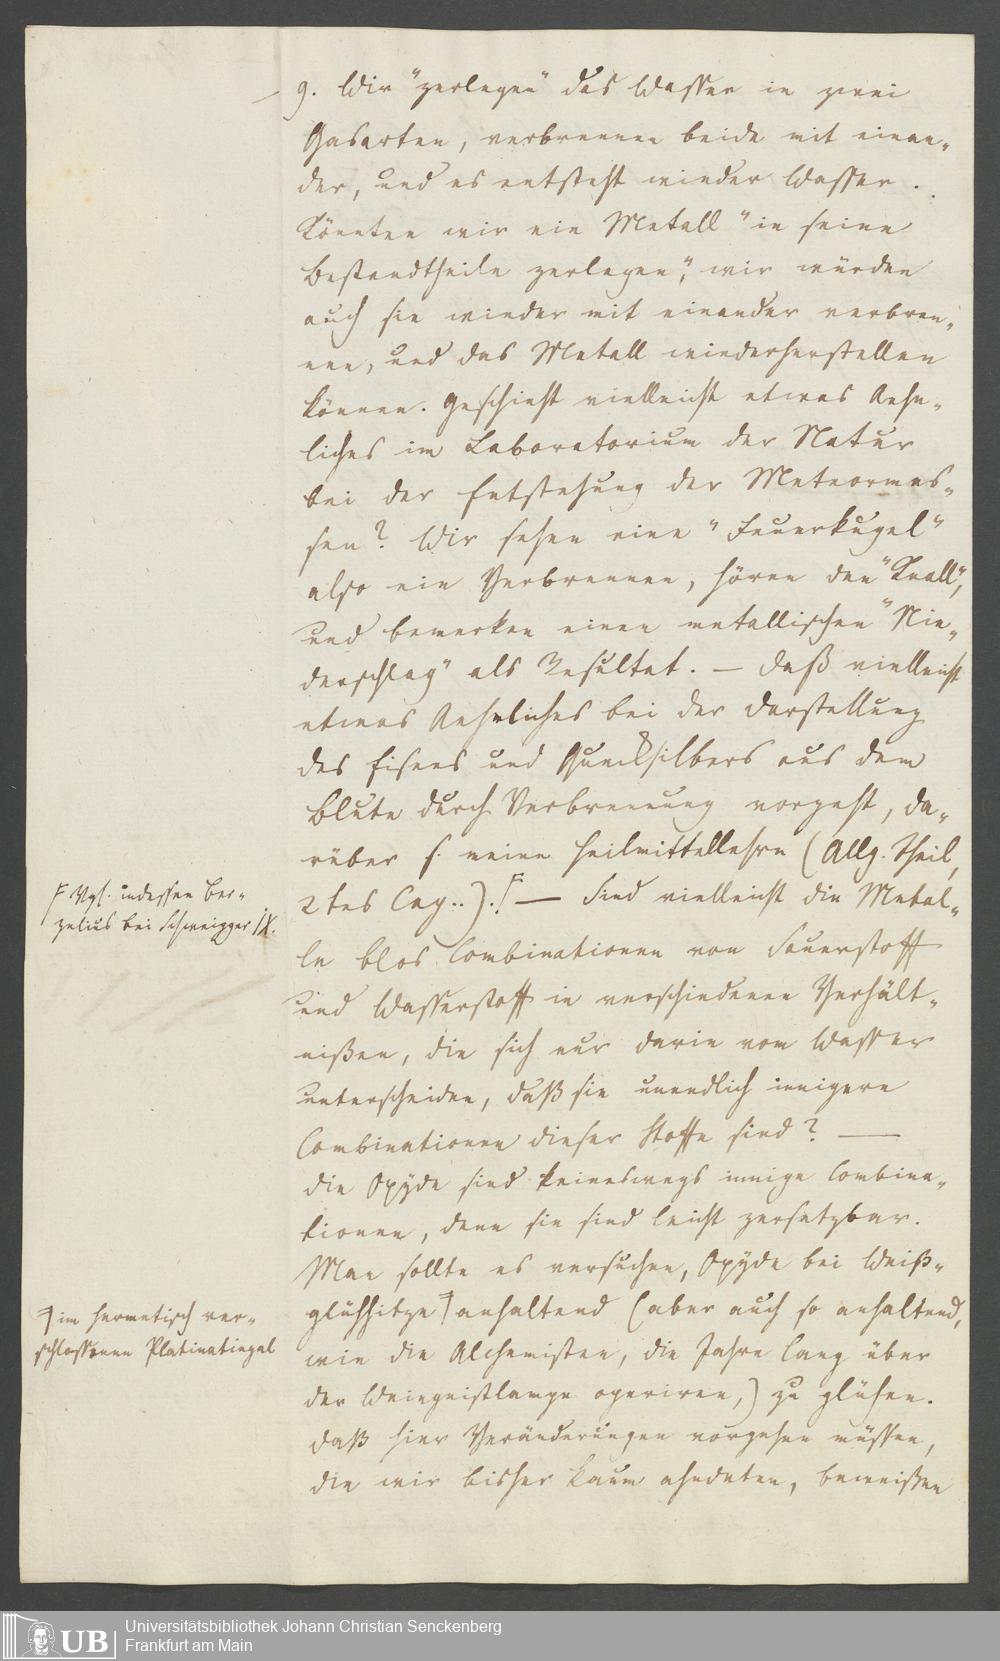 9. Wir "zerlegen" das Wasser in zwei
Gasarten, verbrennen beide mit einan-
der, und es entsteht wieder Wasser.
Könnten wir ein Metall "in seine
Bestandtheile zerlegen", wir würden
auch sie wieder mit einander verbren-
nen, und das Metall wiederherstellen
können. Geschieht vielleicht etwas Aehn-
liches im Laboratorium der Natur
bei der Entstehung der Meteormas-
sen? Wir sehen eine "Feuerkugel"
also ein Verbrennen, hören den "Knall",
und bemerken einen metallischen "Nie-
derschlag" als Resultat. — Daß vielleicht
etwas Aehnliches bei der Darstellung
des Eisens und Quecksilbers aus dem
Blute durch Verbrennung vorgeht, da-
rüber s. meine Heilmittellehre (Allg. Theil,
2tes Cap..).F — Sind vielleicht die Metal-
le blos Combinationen von Sauerstoff
und Wasserstoff in verschiedenen Verhält-
nißen, die sich nur darin vom Wasser
unterscheiden, daß sie unendlich innigere
Combinationen dieser Stoffe sind? —
Die Oxÿde sind keineswegs innige Combina-
tionen, denn sie sind leicht zersetzbar.
Man sollte es versuchen, Oxÿde bei Weiß-
glühhitze anhaltend (aber auch so anhaltend,
wie die Alchemisten, die Jahre lang über
der Weingeistlampe operiren,) zu glühen.
Daß hier Veränderungen vorgehen müssen,
die wir bisher kaum ahndeten, beweißen
F Vgl. indessen Ber-
zelius bei Schweigger IX.
im hermetisch ver-
schlossenen Platinatiegel
UB
Universitätsbibliothek Johann Christian Senckenberg
Frankfurt am Main